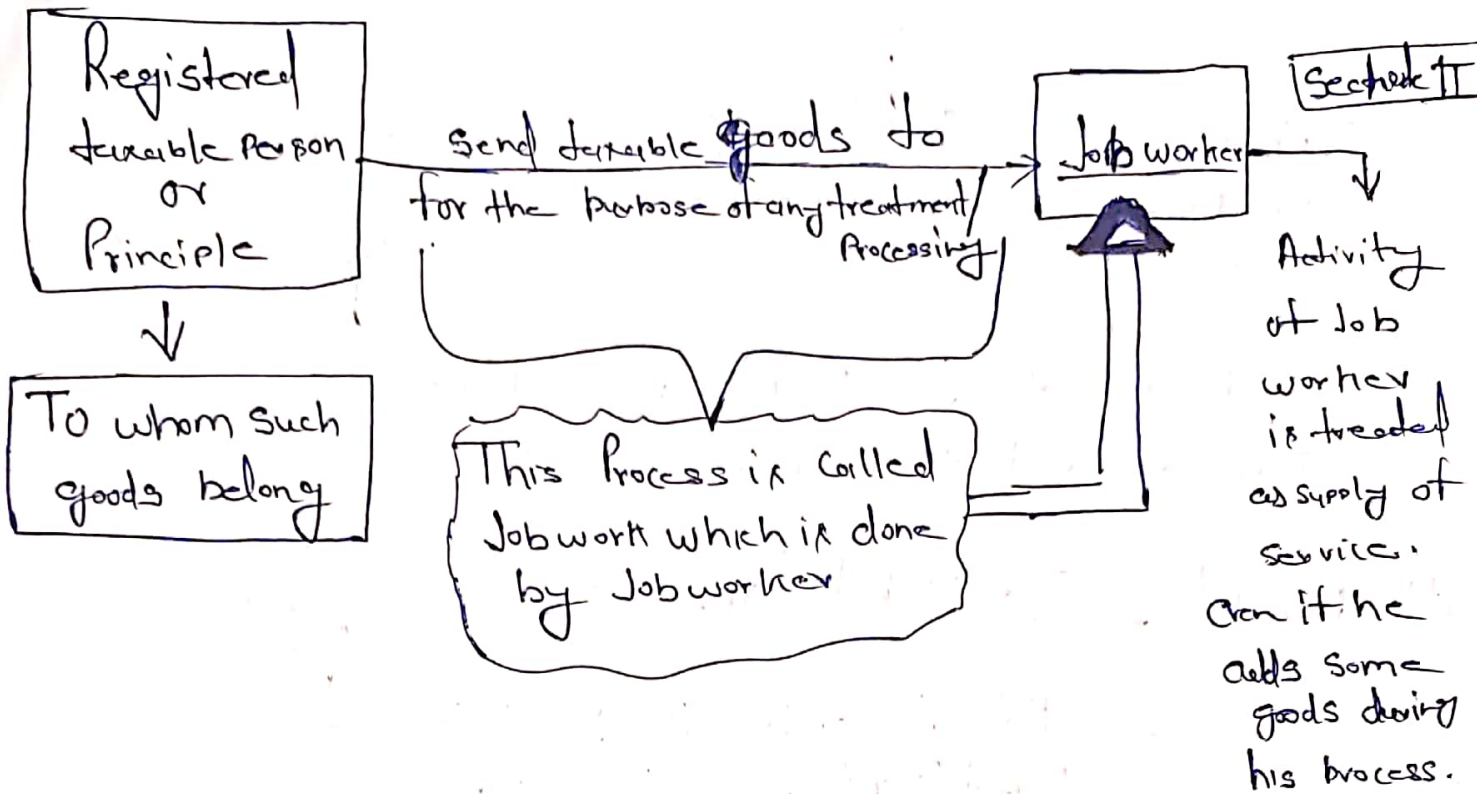 Registered
taxable Person
or
Principle
To whom such
goods belong
Send taxable goods to
for the purpose of any treatment/
Processing
This Process is Called
Jobwork which is done
by Jobworker
Job worker
Activity
of Job
worker
is treated
as supply of
service.
even if he
adds some
goods during
his process.